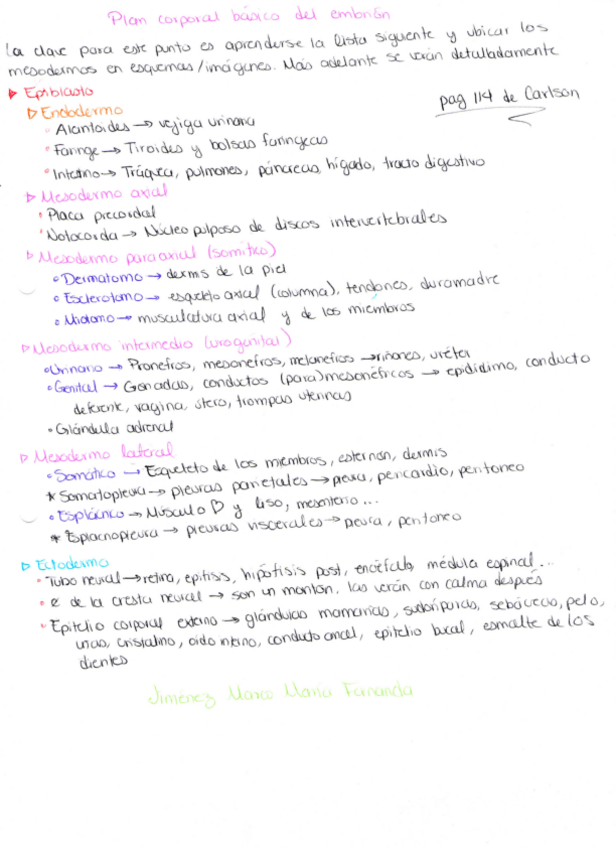 Plan corporal básico del embrión
La clave para este punto es aprenderse la lista siguente y ubicar los
mesodermos en esquemas/imágenes. Más adelante se verán detalladamente
Epiblasto
pag 114 de Carlson
Endodermo
Alantoides → vejiga urinaria
Faringe → Tiroides y bolsas faríngeas
Intestino → Tráquea, pulmones, páncreas, hígado, tracto digestivo
Mesodermo axial
Placa precordal
Notocorda → Núcleo pulposo de discos intervertebrales
Mesodermo paraaxial (somítico)
Dermatomo → dermis de la piel
Esclerotomo → esqueleto axial (columna), tendones, duramadre
Miotomo → musculatura axial y de los miembros
Mesodermo intermedio (urogenital)
Urinario → Pronefros, mesonefros, metanefros → riñones, uréter
Genital → Gonadas, conductos (para)mesonéfricos → epidídimo, conducto
deferente, vagina, útero, trompas uterinas
Glándula adrenal
Mesodermo lateral
Somático → Esqueleto de los miembros, esternón, dermis
* Somatopleura → pleuras parietales → pleura, pericardio, peritoneo
Esplácnico → Músculo ♡ y liso, mesenterio...
* Esplacnopleura → pleuras viscerales → pleura, peritoneo
Ectodermo
Tubo neural → retina, epífisis, hipófisis post, encéfalo, médula espinal...
de la cresta neural → son un montón, las verán con calma después
Epitelio corporal externo → glándulas mamarias, sudoríparas, sebáceas, pelo,
unas, cristalino, oído interno, conducto anal, epitelio bucal, esmalte de los
dientes
Jiménez Marco María Fernanda